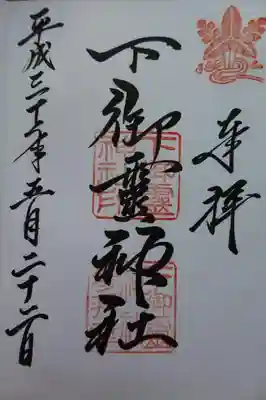 奉拝
下御靈神社
平成 十 年五月二十 日